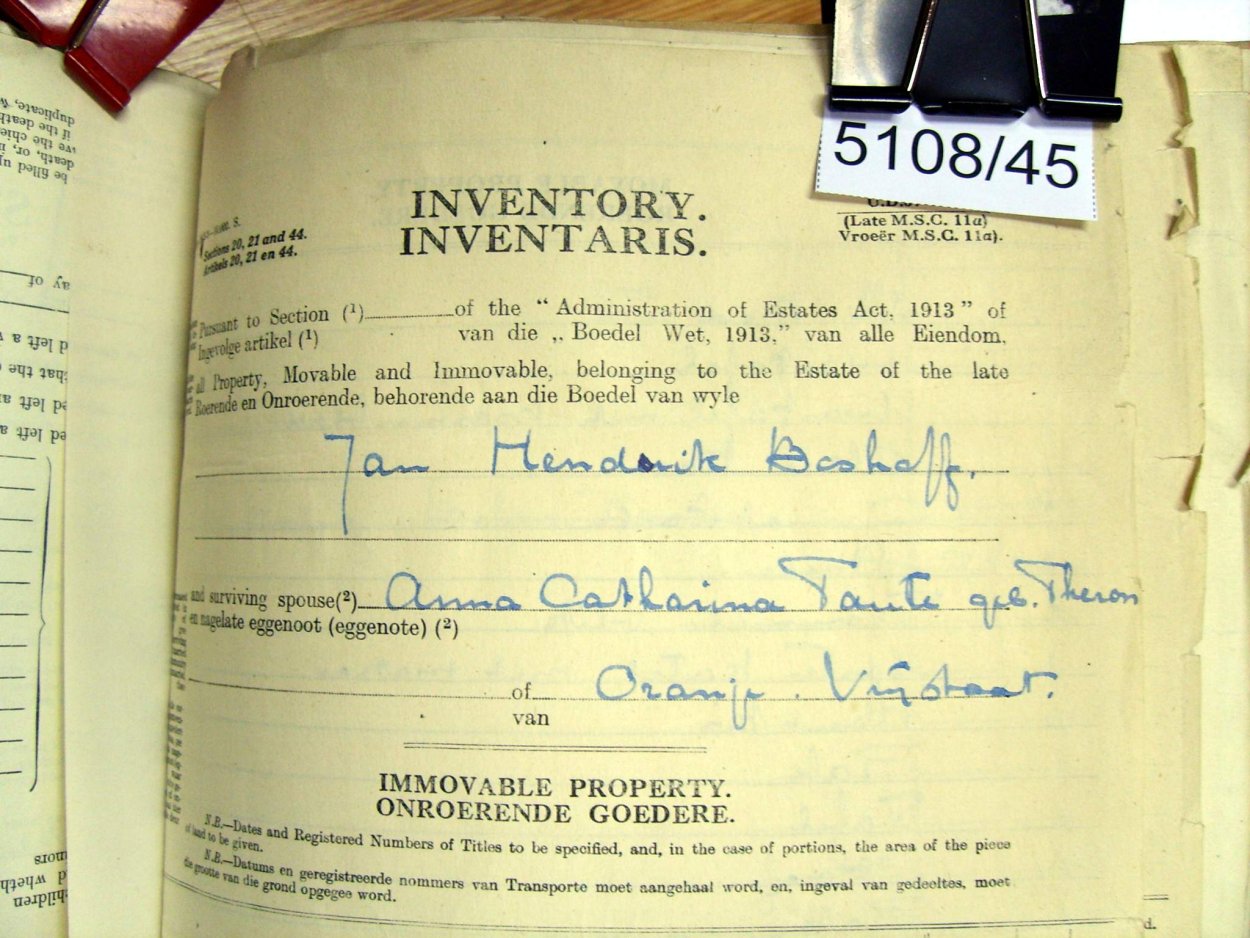 5108/45
INVENTORY.
INVENTARIS.
S.
Sections 20, 21 and 44.
Artikels 20, 21 en 44.
(Late M.S.C. 11a)
Vroeër M.S.C. 11a).
Pursuant to Section (¹) of the “Administration of Estates Act, 1913” of
Ingevolge artikel (¹) van die „Boedel Wet, 1913,” van alle Eiendom,
all Property, Movable and Immovable, belonging to the Estate of the late
Roerende en Onroerende, behorende aan die Boedel van wyle
Jan Hendrik Boshoff.
and surviving spouse(²) Anna Catharina Taute geb. Theron
en nagelate eggenoot (eggenote) (²)
of Oranje Vrijstaat.
van
IMMOVABLE PROPERTY.
ONROERENDE GOEDERE.
N.B.—Dates and Registered Numbers of Titles to be specified, and, in the case of portions, the area of the piece
of land to be given.
N.B.—Datums en geregistreerde nommers van Transporte moet aangehaal word, en, ingeval van gedeeltes, moet
die grootte van die grond opgegee word.
be filled up
death, or, i
ve the chie
if the death
duplicate, w
ay of
d left a v
hat the
ed left a
ed left a
children
d wheth
nors
d.